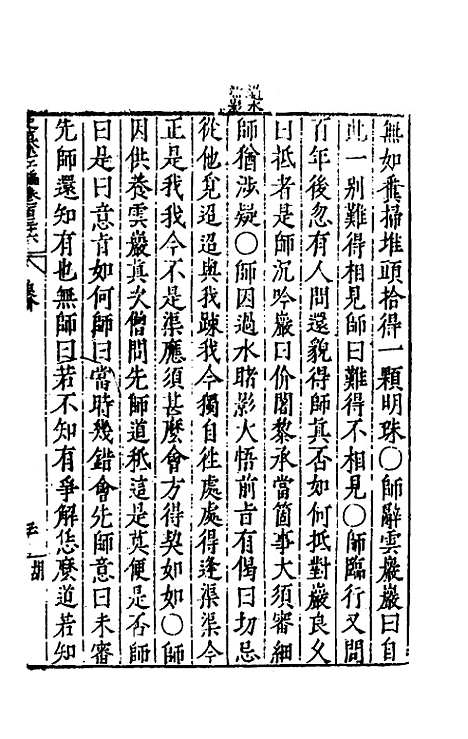 過水
無如糞掃堆頭拾得一顆明珠○師辭雲巖巖曰自
此一別難得相見師曰難得不相見○師臨行又問
百年後忽有人問還貌得師真否如何抵對巖良久
曰抵者是師沉吟巖曰价闍黎承當箇事大須審細
師猶涉疑○師因過水睹影大悟前旨有偈曰切忌
從他覓迢迢與我踈我今獨自往處處得逢渠渠今
正是我我今不是渠應須甚麼會方得契如如○師
因供養雲巖真次僧問先師道秪這是莫便是否師
曰是曰意旨如何師曰當時幾錯會先師意曰未審
先師還知有也無師曰若不知有爭解恁麼道若知